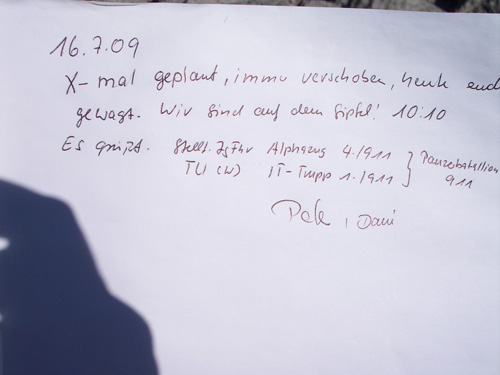 16.7.09
X-mal geplant, immer verschoben, heute end
gewagt. Wir sind auf dem Gipfel! 10:10
Es grüßt. Stellv. ZgFhr Alphazug 4./911
TU (W) IT-Trupp 1./911
Panzerbataillion
911
Dani